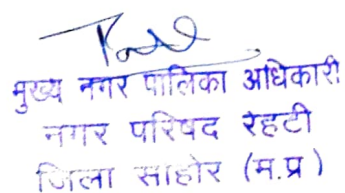 मुख्य नगर पालिका अधिकारी
नगर परिषद रेहटी
जिला साहोर (म.प्र)